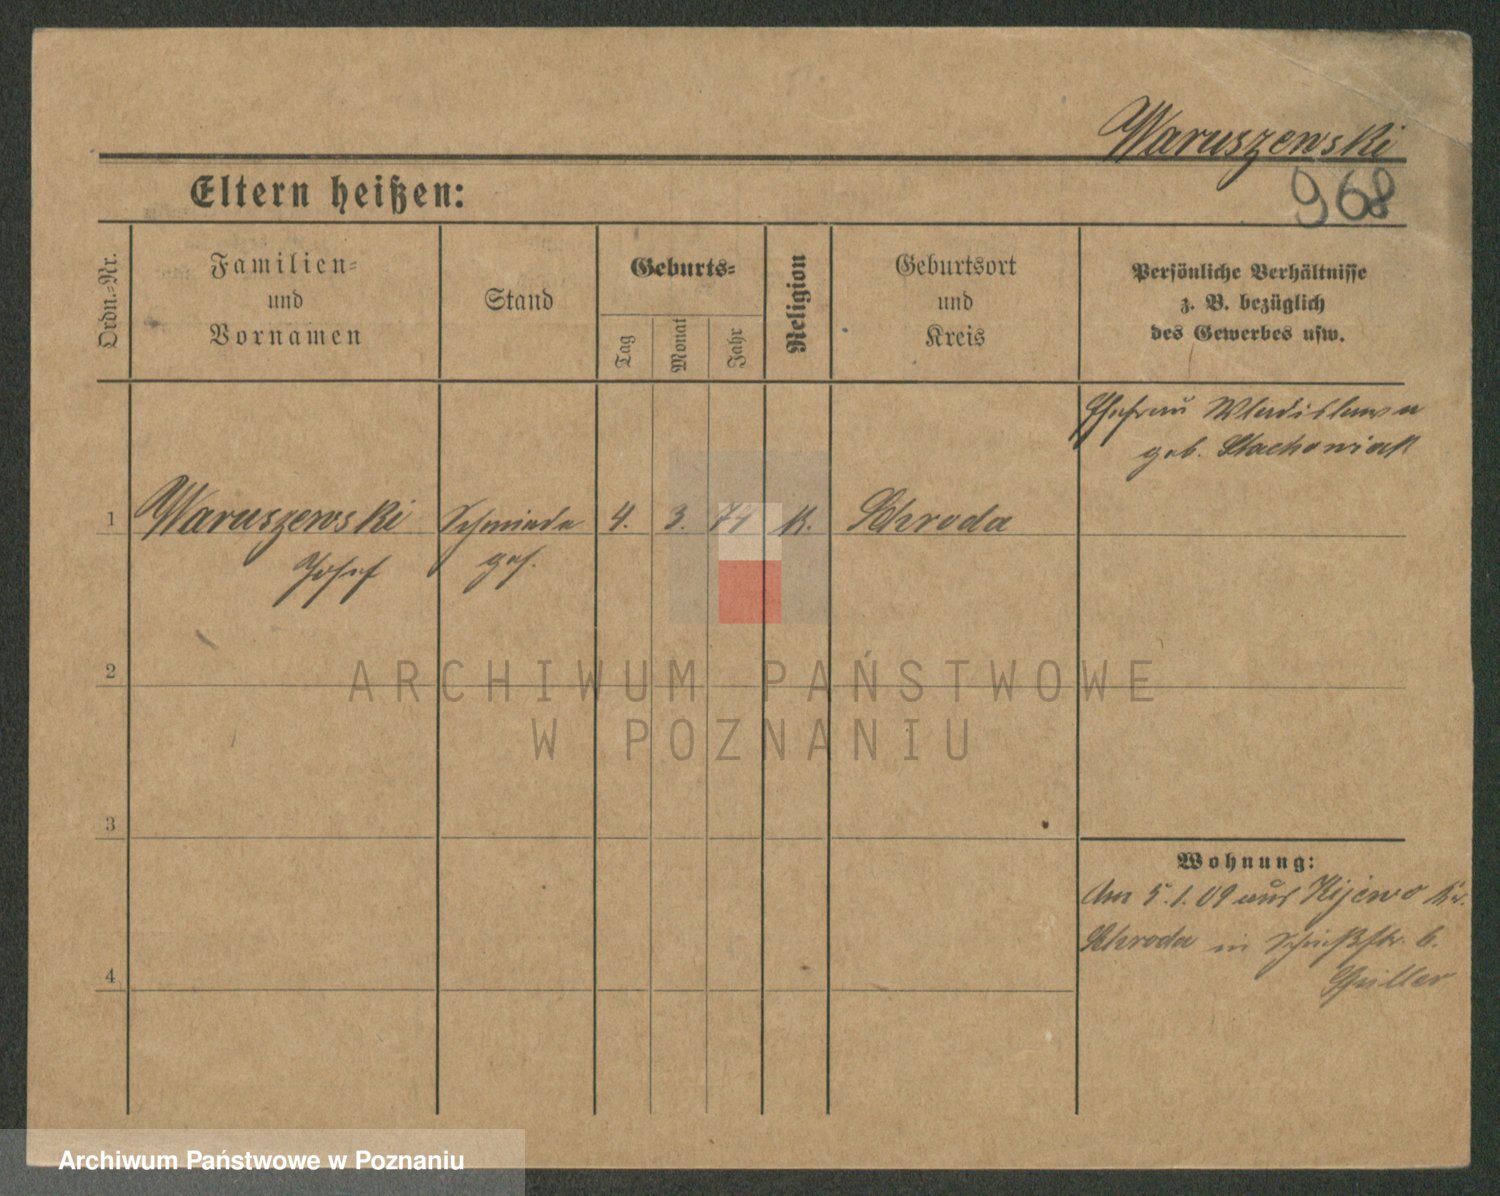 Waruszewski
Eltern heißen:
968
Ordn.-Nr.
Familien-
und
Vornamen
Stand
Geburts-
Tag
Monat
Jahr
Religion
Geburtsort
und
Kreis
Persönliche Verhältnisse
z. B. bezüglich
des Gewerbes usw.
Ehefrau Wladislawa
geb. Stachowiak
1 Waruszewski Schmiede 4. 3. 74 K. Schroda
Josef ges.
2
3
4
Wohnung:
Am 5.1.09 aus Kijewo Kr.
Schroda in Schießstr. 6.
ARCHIWUM PAŃSTWOWE
W POZNANIU
Archiwum Państwowe w Poznaniu